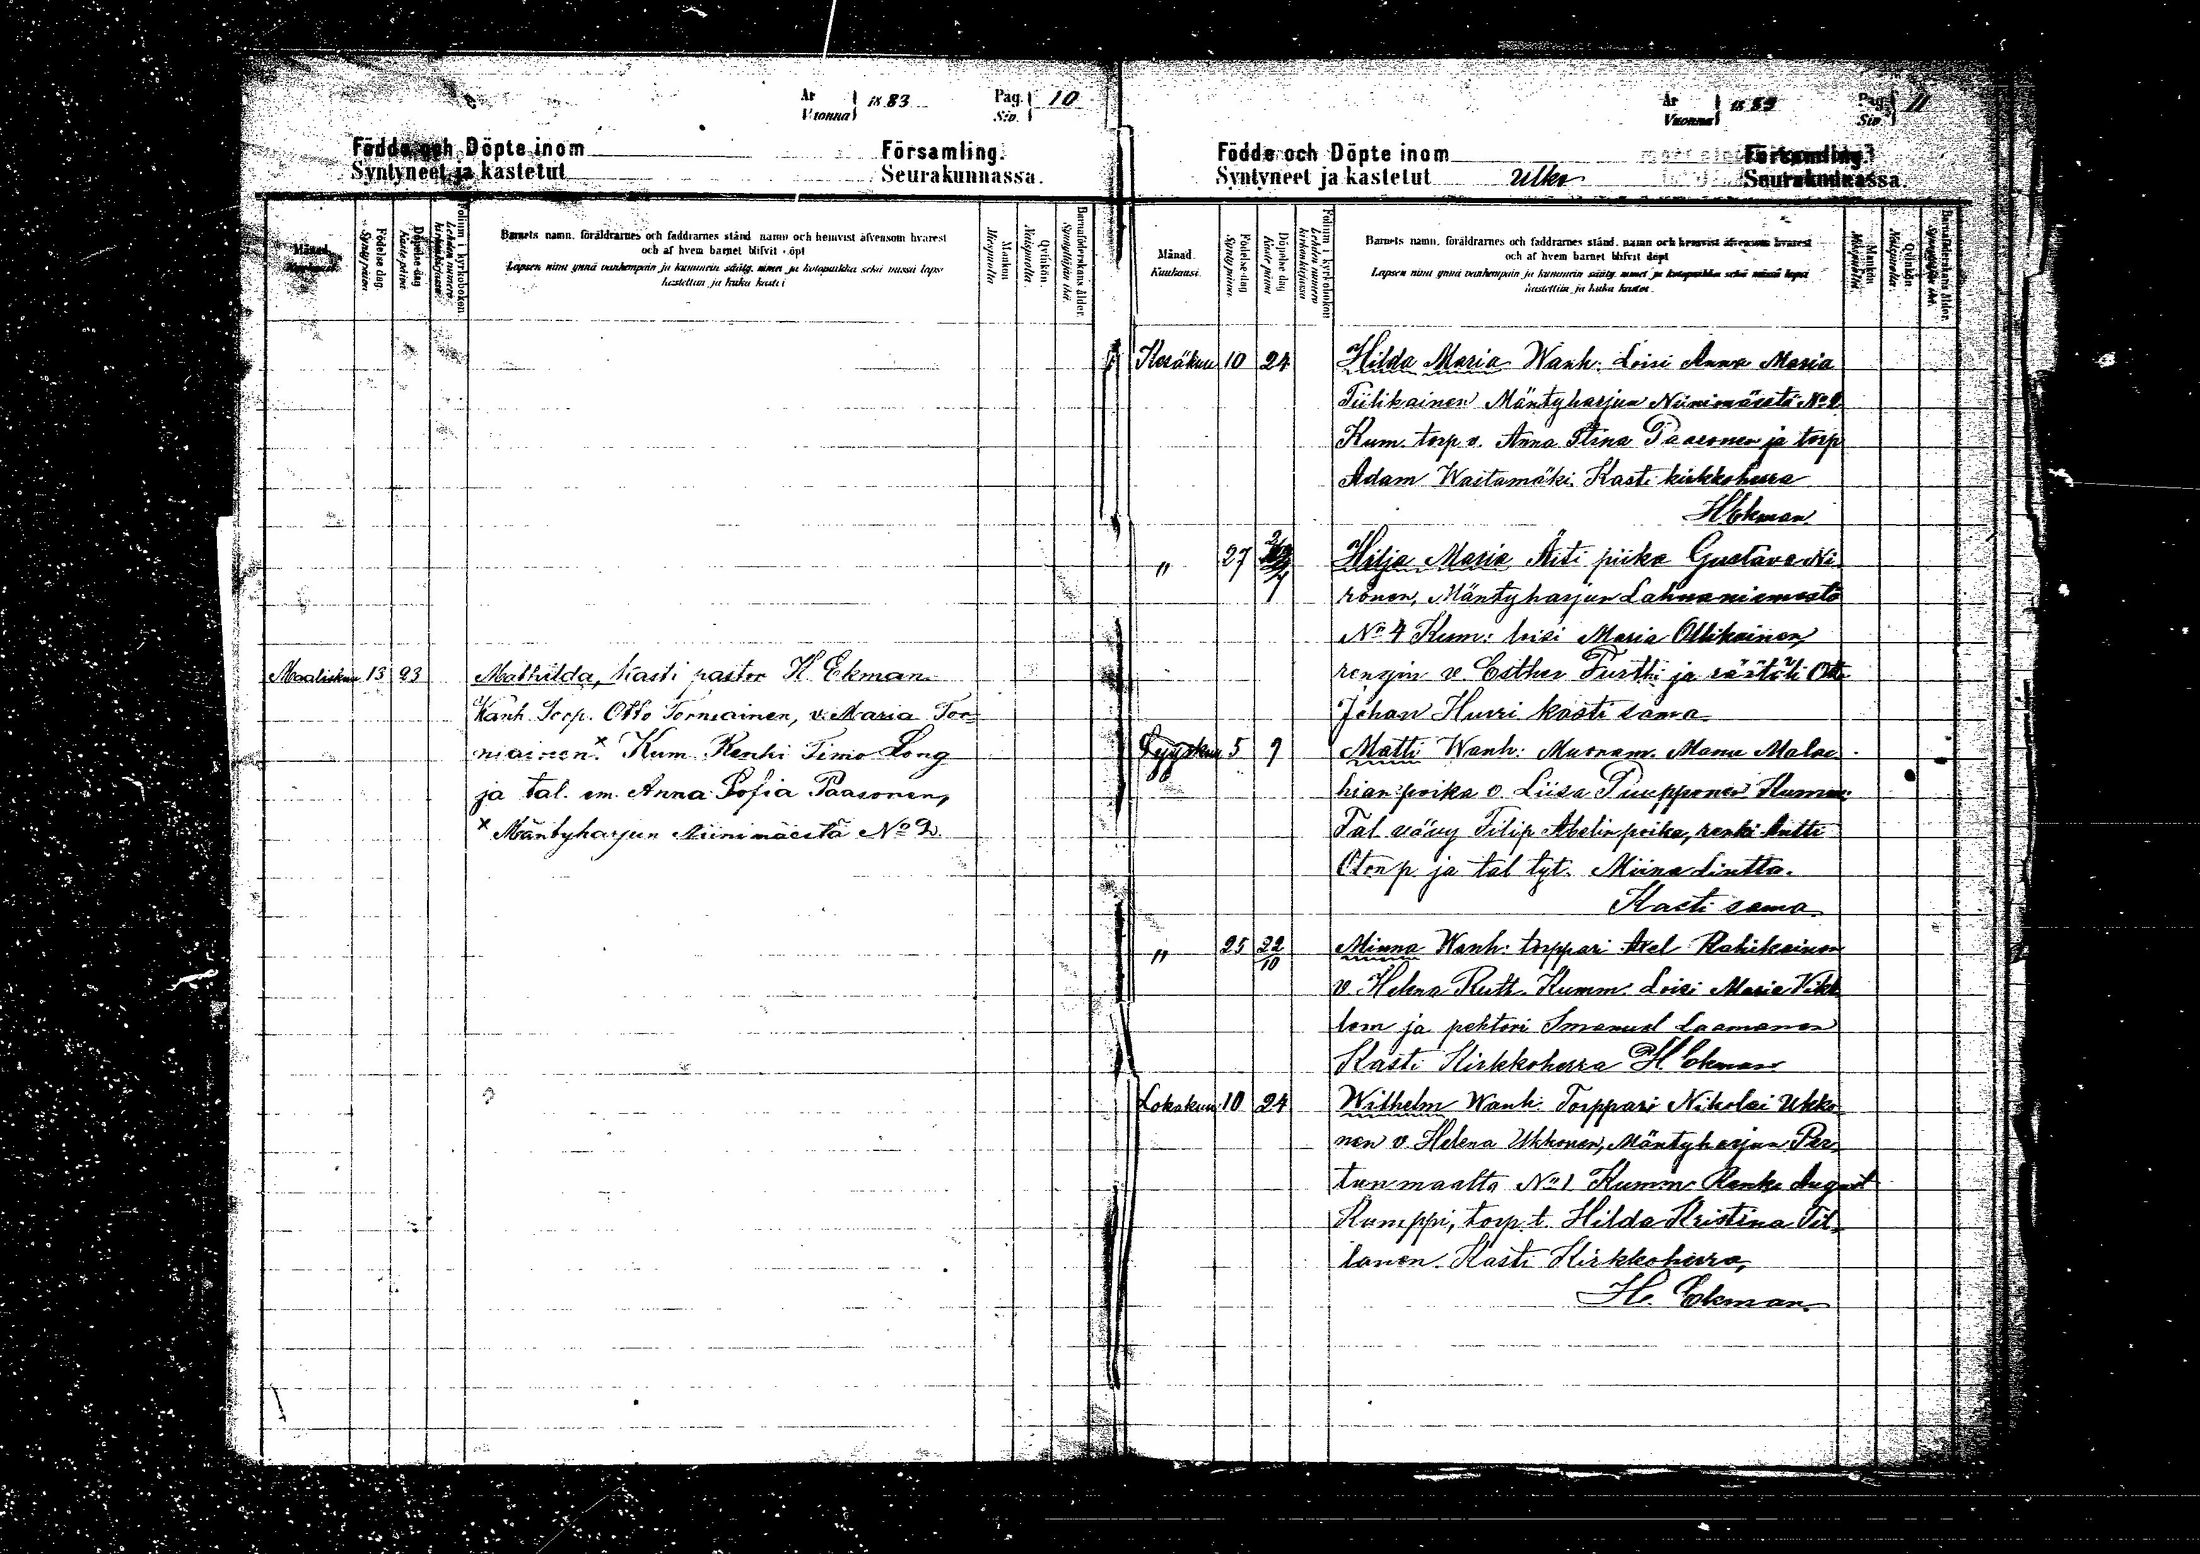 År Vuonna 1883 Pag. Siv. 10
Födde och Döpte inom Församling.
Syntyneet ja kastetut Seurakunnassa.
Månad. Kuukausi.
Födelse-dag. Syntypäivä.
Döpelse-dag. Kaste-päivä.
Folium i kyrkoboken. Lehden numero kirkonkirjassa.
Barnets namn, föräldrarnes och faddrarnes stånd, namn och hemvist äfvensom hvarest
och af hvem barnet blifvit döpt
Lapsen nimi ynnä vanhempain ja kummein sääty, nimet ja kotopaikka sekä missä lapsi
kastettiin ja kuka kastoi
Mankön. Miespuolta.
Qvinkön. Naispuolta.
Barnaföderskans ålder. Synnyttäjän ikä.
Maaliskuu 13 23 Mathilda, kasti pastor H Ekman
Wanh. Torp. Otto Torniainen, v. Maria Tor-
niainen.x Kum. Renki Timo Long
ja tal. em. Anna Sofia Paasonen,
x Mäntyharjun Niinimäestä No 2.
År Vuonna 1883 Pag. Siv. 11
Födde och Döpte inom Församling.
Syntyneet ja kastetut Ulko Seurakunnassa.
Månad. Kuukausi.
Födelse-dag. Syntypäivä.
Döpelse dag. Kaste päivä.
Folium i kyrkoboken. Lehden numero kirkonkirjassa.
Barnets namn, föräldrarnes och faddrarnes stånd, namn och hemvist äfvensom hvarest
och af hvem barnet blifvit döpt
Lapsen nimi ynnä vanhempain ja kummein sääty, nimet ja kotopaikka sekä missä lapsi
kastettiin ja kuka kastoi.
Mankön. Miespuolta.
Qvinkön. Naispuolta.
Barnaföderskans ålder. Synnyttäjän ikä.
Kesäkuu 10 24 Hilda Maria Wanh: Loisi Anna Maria
Tiilikainen Mäntyharjun Niinimäestä No 2
Kum. torp. v. Anna Stina Paasonen ja torp
Adam Waitamäki. Kasti kirkkoherra
H Ekman
" 27 Hilja Maria Äiti piika Gustava Ni-
ronen, Mäntyharjun Lahnaniemestä
No 4 Kum: loisi Maria Ollikainen,
rengin v. Esther Turtti ja räätäli Otto
Johan Hurri kasti sama
Syyskuu 5 9 Matti Wanh: Muonam. Manu Malac-
hian poika v. Liisa Puupponen Kumm:
Tal vävy Filip Abelin poika, renki Antti
Oton p. ja tal tyt. Miina Liutta.
Kasti sama
" 25 22/10 Minna Wanh: torppari Axel Rahikainen
v. Helena Ruth. Kumm. Loisi Maria Vikt
lom ja pehtori Imanuel Laamanen
Kasti Kirkkoherra H Ekman
Lokakuu 10 24 Wilhelm Wanh: Torppari Nikolai Ukko-
nen v. Helena Ukkonen, Mäntyharjun Per-
tunmaalta No 1 Kumm. Renki August
Kumppi, torp. t. Hilda Kristina Til-
lanen. Kasti Kirkkoherra,
H. Ekman.